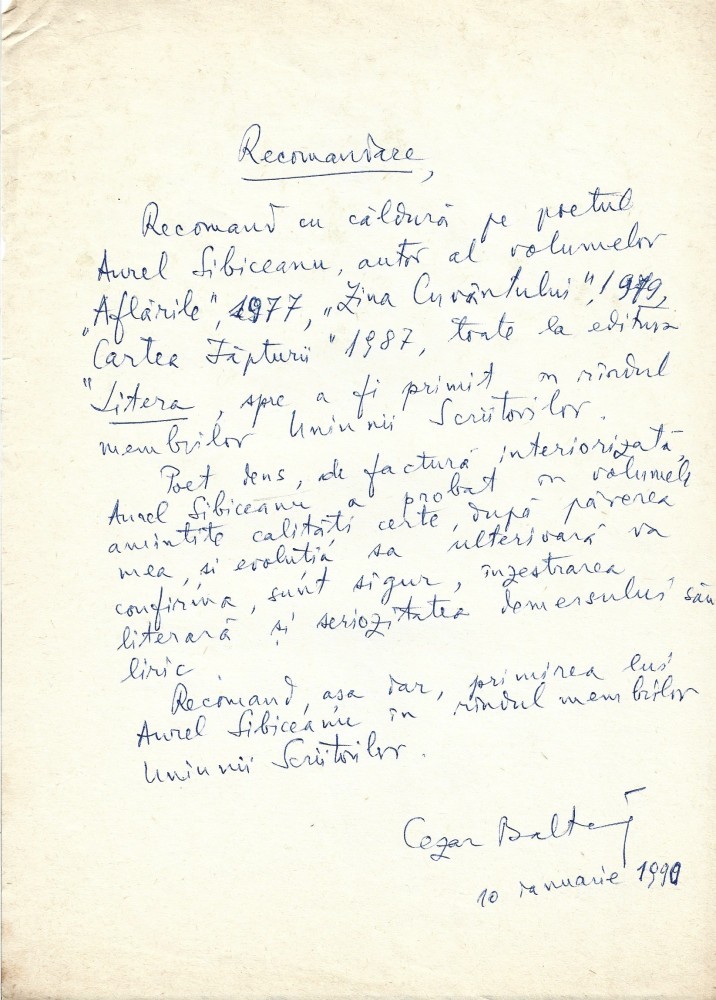 Recomandare,
Recomand cu căldură pe poetul
Aurel Sibiceanu, autor al volumelor
„Aflările", 1977, „Ziua Cuvântului", 1979,
„Cartea Făpturii" 1987, toate la editura
Litera, spre a fi primit în rîndul
membrilor Uniunii Scriitorilor.
Poet dens, de factură interiorizată,
Aurel Sibiceanu a probat în volumele
amintite calități certe, după părerea
mea, și evoluția sa ulterioară va
confirma, sunt sigur, înzestrarea
literară și seriozitatea demersului său
liric
Recomand, așa dar, primirea lui
Aurel Sibiceanu în rîndul membrilor
Uniunii Scriitorilor.
Cezar Baltag
10 ianuarie 1990